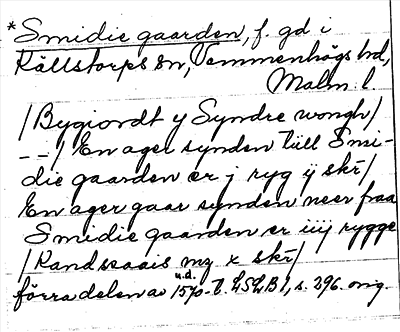 * Smidie gaarden, f. gd i
Källstorps sn, Vemmenhögs hd,
Malm. l.
/Bygiordt y Syndre wongh/
--/ En ager synden till Smi-
die gaarden er j ryg ÿ skr/
En ager gaar synden neer fraa
Smidie gaarden er iiij rygge
/Randsaais mz x skr/
förra delen av 1570-t. LSLB1, s. 296. orig.
u.d.